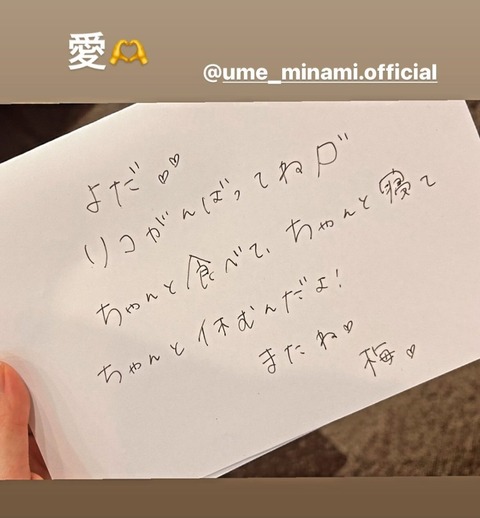 愛🫶
@ume_minami.official
よだ♡♡
リコがんばってねP゛
ちゃんと食べて、ちゃんと寝て
ちゃんと休むんだよ!
またね♡
梅♡